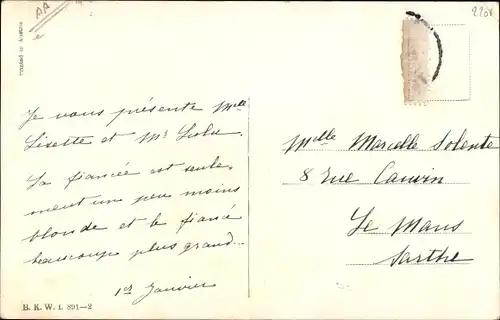 AA
2208
Printed in Austria
Je vous présente Melle
Lisette et Mr Lulu.
La fiancée est seule-
ment un peu moins
blonde et le fiancé
beaucoup plus grand...
1er Janvier
B. K. W. I. 891—2
Melle Marcelle Solente
8 Rue Cauvin
Le Mans
Sarthe